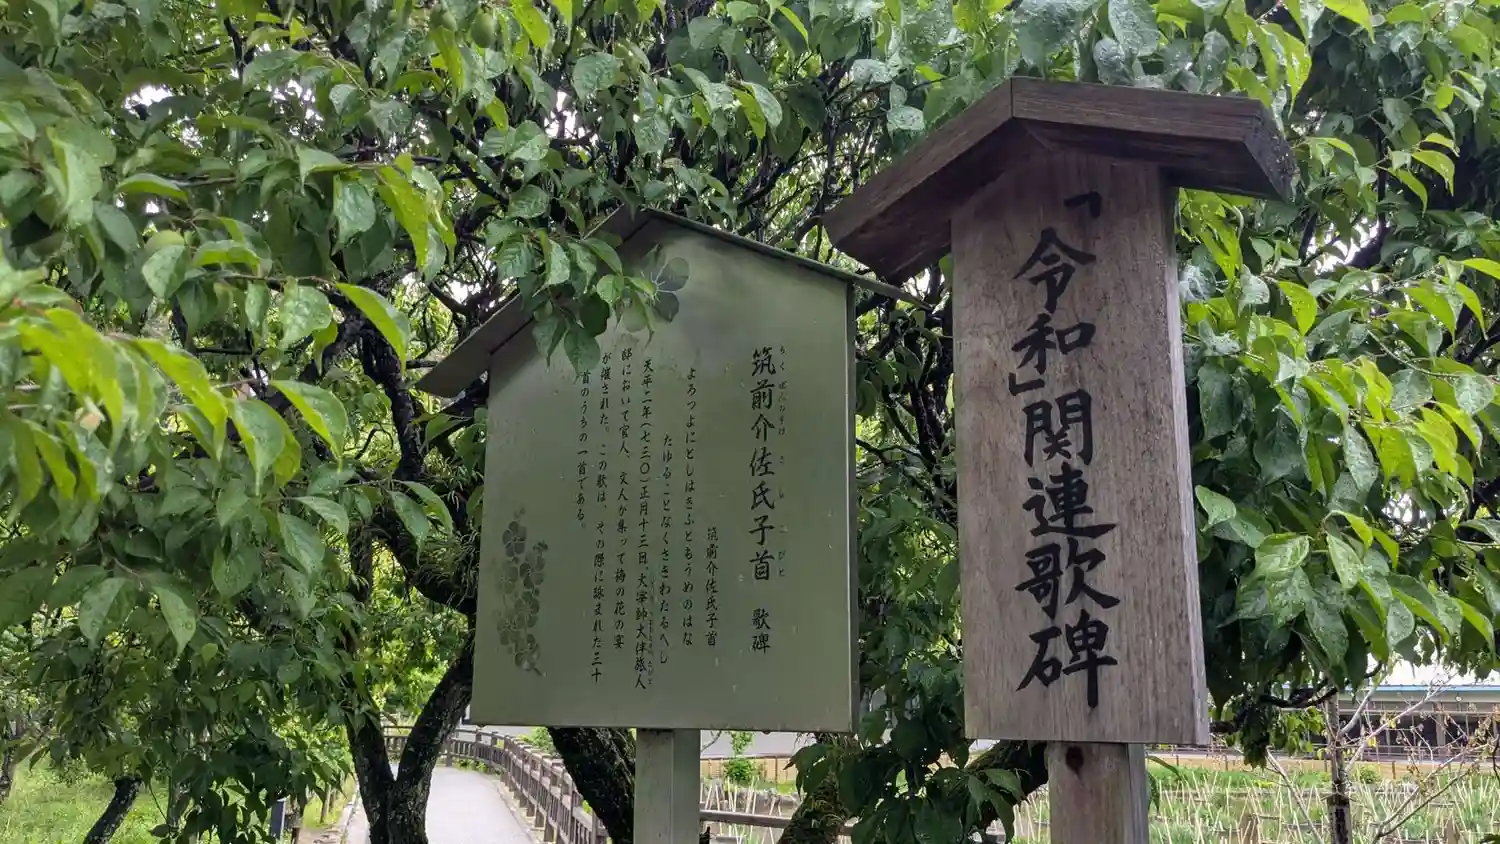 「令和」関連歌碑
筑前介佐氏子首 歌碑
ちくぜんのすけ さ し の こびと
筑前介佐氏子首
よろつよにとしはきふともうめのはな
たゆることなくさきわたるへし
天平二年(七三〇)正月十三日、大宰帥大伴旅人
邸において官人、文人が集って梅の花の宴
が催された。この歌は、その際に詠まれた三十
首のうちの一首である。